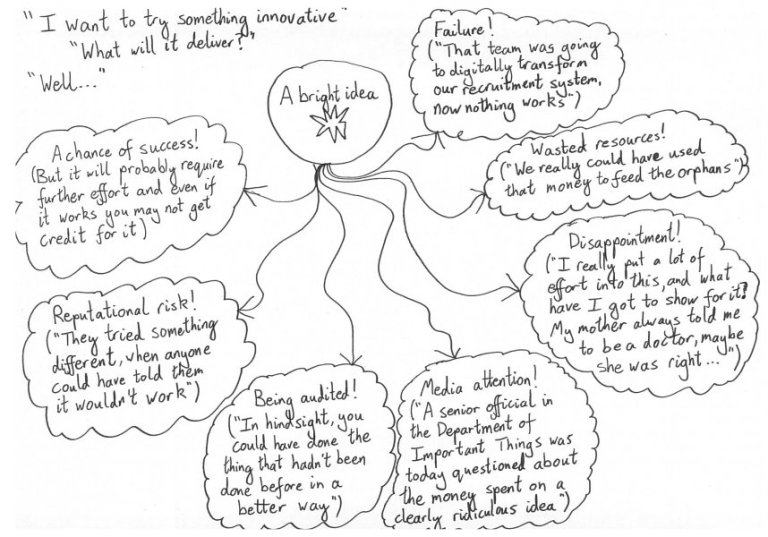 "I want to try something innovative"
"What will it deliver?"
"Well..."
A bright idea
Failure!
("That team was going
to digitally transform
our recruitment system,
now nothing works")
Wasted resources!
("We really could have used
that money to feed the orphans")
Disappointment!
("I really put a lot of
effort into this, and what
have I got to show for it!
My mother always told me
to be a doctor, maybe
she was right...")
Media attention!
("A senior official in
the Department of
Important Things was
today questioned about
the money spent on a
clearly ridiculous idea")
Being audited!
("In hindsight, you
could have done the
thing that hadn't been
done before in a
better way")
Reputational risk!
("They tried something
different, when anyone
could have told them
it wouldn't work")
A chance of success!
(But it will probably require
further effort and even if
it works you may not get
credit for it)